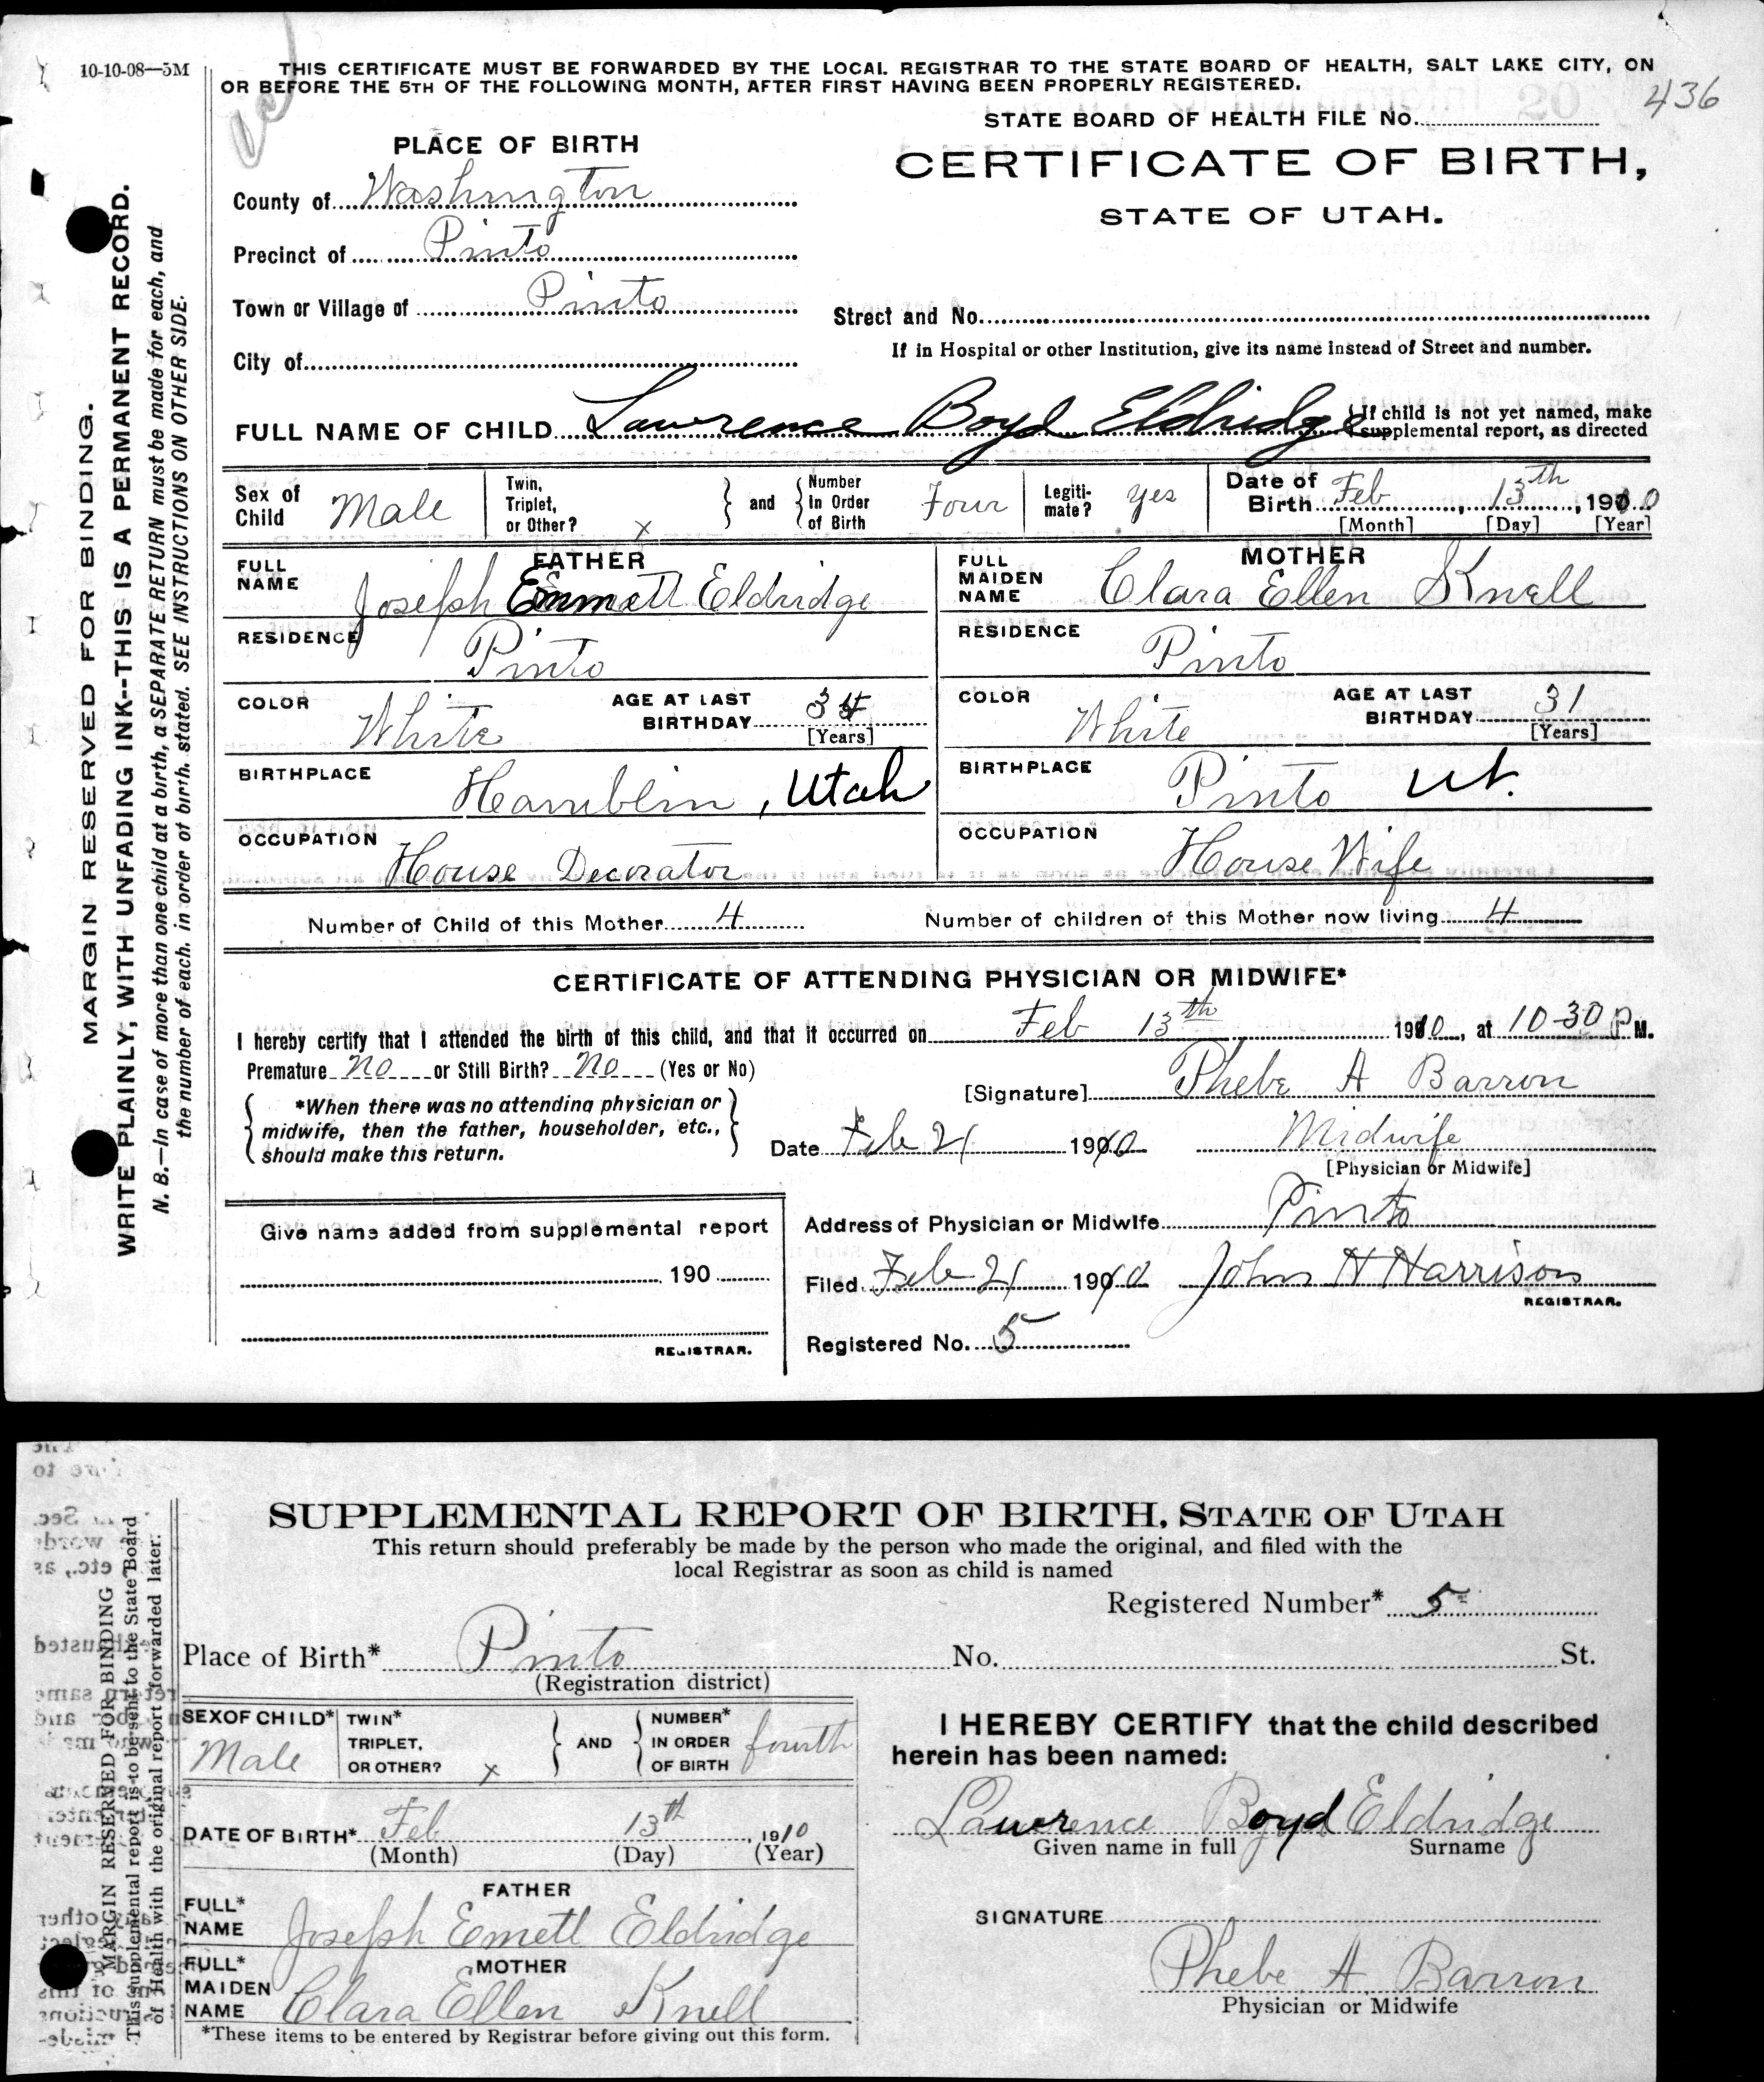 10-10-08—5M
THIS CERTIFICATE MUST BE FORWARDED BY THE LOCAL REGISTRAR TO THE STATE BOARD OF HEALTH, SALT LAKE CITY, ON
OR BEFORE THE 5TH OF THE FOLLOWING MONTH, AFTER FIRST HAVING BEEN PROPERLY REGISTERED.
436
STATE BOARD OF HEALTH FILE No.
PLACE OF BIRTH
CERTIFICATE OF BIRTH,
STATE OF UTAH.
County of Washington
Precinct of Pinto
Town or Village of Pinto
Street and No.
City of
If in Hospital or other Institution, give its name instead of Street and number.
FULL NAME OF CHILD Lawrence Boyd Eldridge
If child is not yet named, make
supplemental report, as directed
Sex of Child Male
Twin, Triplet, or Other? x
and
Number In Order of Birth Four
Legiti-mate? yes
Date of Birth Feb 13th, 1910
[Month] [Day] [Year]
FATHER
FULL NAME Joseph Emmett Eldridge
RESIDENCE Pinto
COLOR White
AGE AT LAST BIRTHDAY 34
[Years]
BIRTHPLACE Hamblin, Utah
OCCUPATION House Decorator
MOTHER
FULL MAIDEN NAME Clara Ellen Knell
RESIDENCE Pinto
COLOR White
AGE AT LAST BIRTHDAY 31
[Years]
BIRTHPLACE Pinto Ut.
OCCUPATION House Wife
Number of Child of this Mother 4
Number of children of this Mother now living 4
CERTIFICATE OF ATTENDING PHYSICIAN OR MIDWIFE*
I hereby certify that I attended the birth of this child, and that it occurred on Feb 13th 1910, at 10-30 P M.
Premature no or Still Birth? no (Yes or No)
*When there was no attending physician or
midwife, then the father, householder, etc.,
should make this return.
[Signature] Phebe A Barron
Date Feb 21 1910 Midwife
[Physician or Midwife]
Give name added from supplemental report
190
REGISTRAR.
Address of Physician or Midwife Pinto
Filed Feb 21 1910 John H Harrison
REGISTRAR.
Registered No. 5
MARGIN RESERVED FOR BINDING.
WRITE PLAINLY, WITH UNFADING INK--THIS IS A PERMANENT RECORD.
N. B.—In case of more than one child at a birth, a SEPARATE RETURN must be made for each, and
the number of each, in order of birth, stated. SEE INSTRUCTIONS ON OTHER SIDE.
SUPPLEMENTAL REPORT OF BIRTH, STATE OF UTAH
This return should preferably be made by the person who made the original, and filed with the
local Registrar as soon as child is named
Registered Number* 5
Place of Birth* Pinto No. St.
(Registration district)
SEX OF CHILD* Male
TWIN* TRIPLET, OR OTHER? x
AND
NUMBER* IN ORDER OF BIRTH fourth
DATE OF BIRTH* Feb 13th, 1910
(Month) (Day) (Year)
FATHER
FULL* NAME Joseph Emett Eldridge
MOTHER
FULL* MAIDEN NAME Clara Ellen Knell
*These items to be entered by Registrar before giving out this form.
I HEREBY CERTIFY that the child described
herein has been named:
Lawrence Boyd Eldridge
Given name in full Surname
SIGNATURE
Phebe A. Barron
Physician or Midwife
MARGIN RESERVED FOR BINDING
This supplemental report is to be sent to the State Board
of Health with the original report forwarded later.